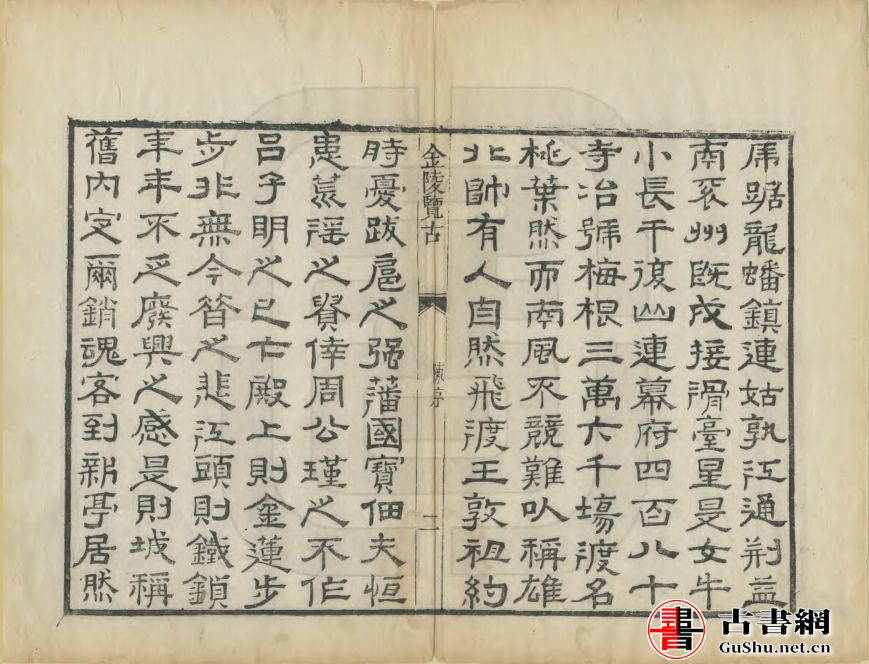 虎踞龍蟠鎮連姑孰江通荆益
南兗州既戍接滑臺星是女牛
小長干復山連幕府四百八十
寺冶號梅根三萬六千塲渡名
桃葉然而南風不競難以稱雄
北帥有人自然飛渡王敦祖約
金陵覽古 陳序 二
時憂跋扈之强藩國寶佃夫恒
患荒淫之嬖倖周公瑾之不作
吕子明之已亡殿上則金蓮步
步非無今昔之悲江頭則鐵鎖
年年不乏廢興之感是則城稱
舊内定爾銷魂客到新亭居然
古書網
GuShu.net.cn